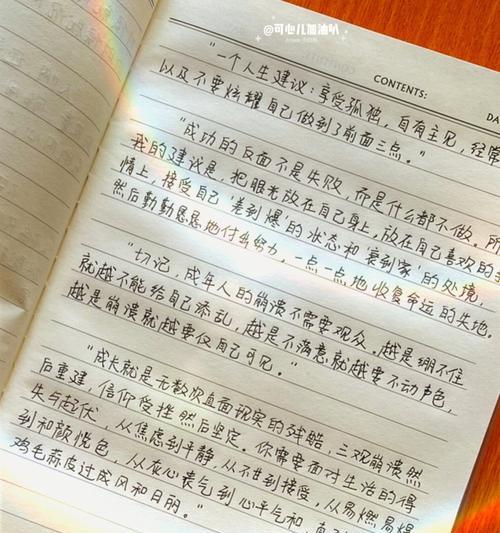 @可心儿加油叭
CONTENTS:
DA
"一个人生建议：享受孤独，自有主见，经常
以及不要炫耀自己做到了前面三点。"
"成功的反面不是失败，而是什么都不做。所
我的建议是，把眼光放在自己身上，放在自己喜欢的
情上，接受自己'差到爆'的状态和'衰到家'的处境，
然后勤勤恳恳地付出努力，一点一点地收复命运的失地。
"切记，成年人的崩溃不需要观众。越是绷不住
就越不能给自己添乱，越是不满意就越要不动声色，
越是崩溃就越要仅自己可见。"
"成长就是无数次直面现实的残酷，三观崩溃然
后重建，信仰受挫然后坚定。你需要面对生活的得
失与起伏，从焦虑到平静，从不甘到接受，从易燃易爆
到和颜悦色，从灰心丧气到心平气和，
鸡毛蒜皮过成风和日丽。"